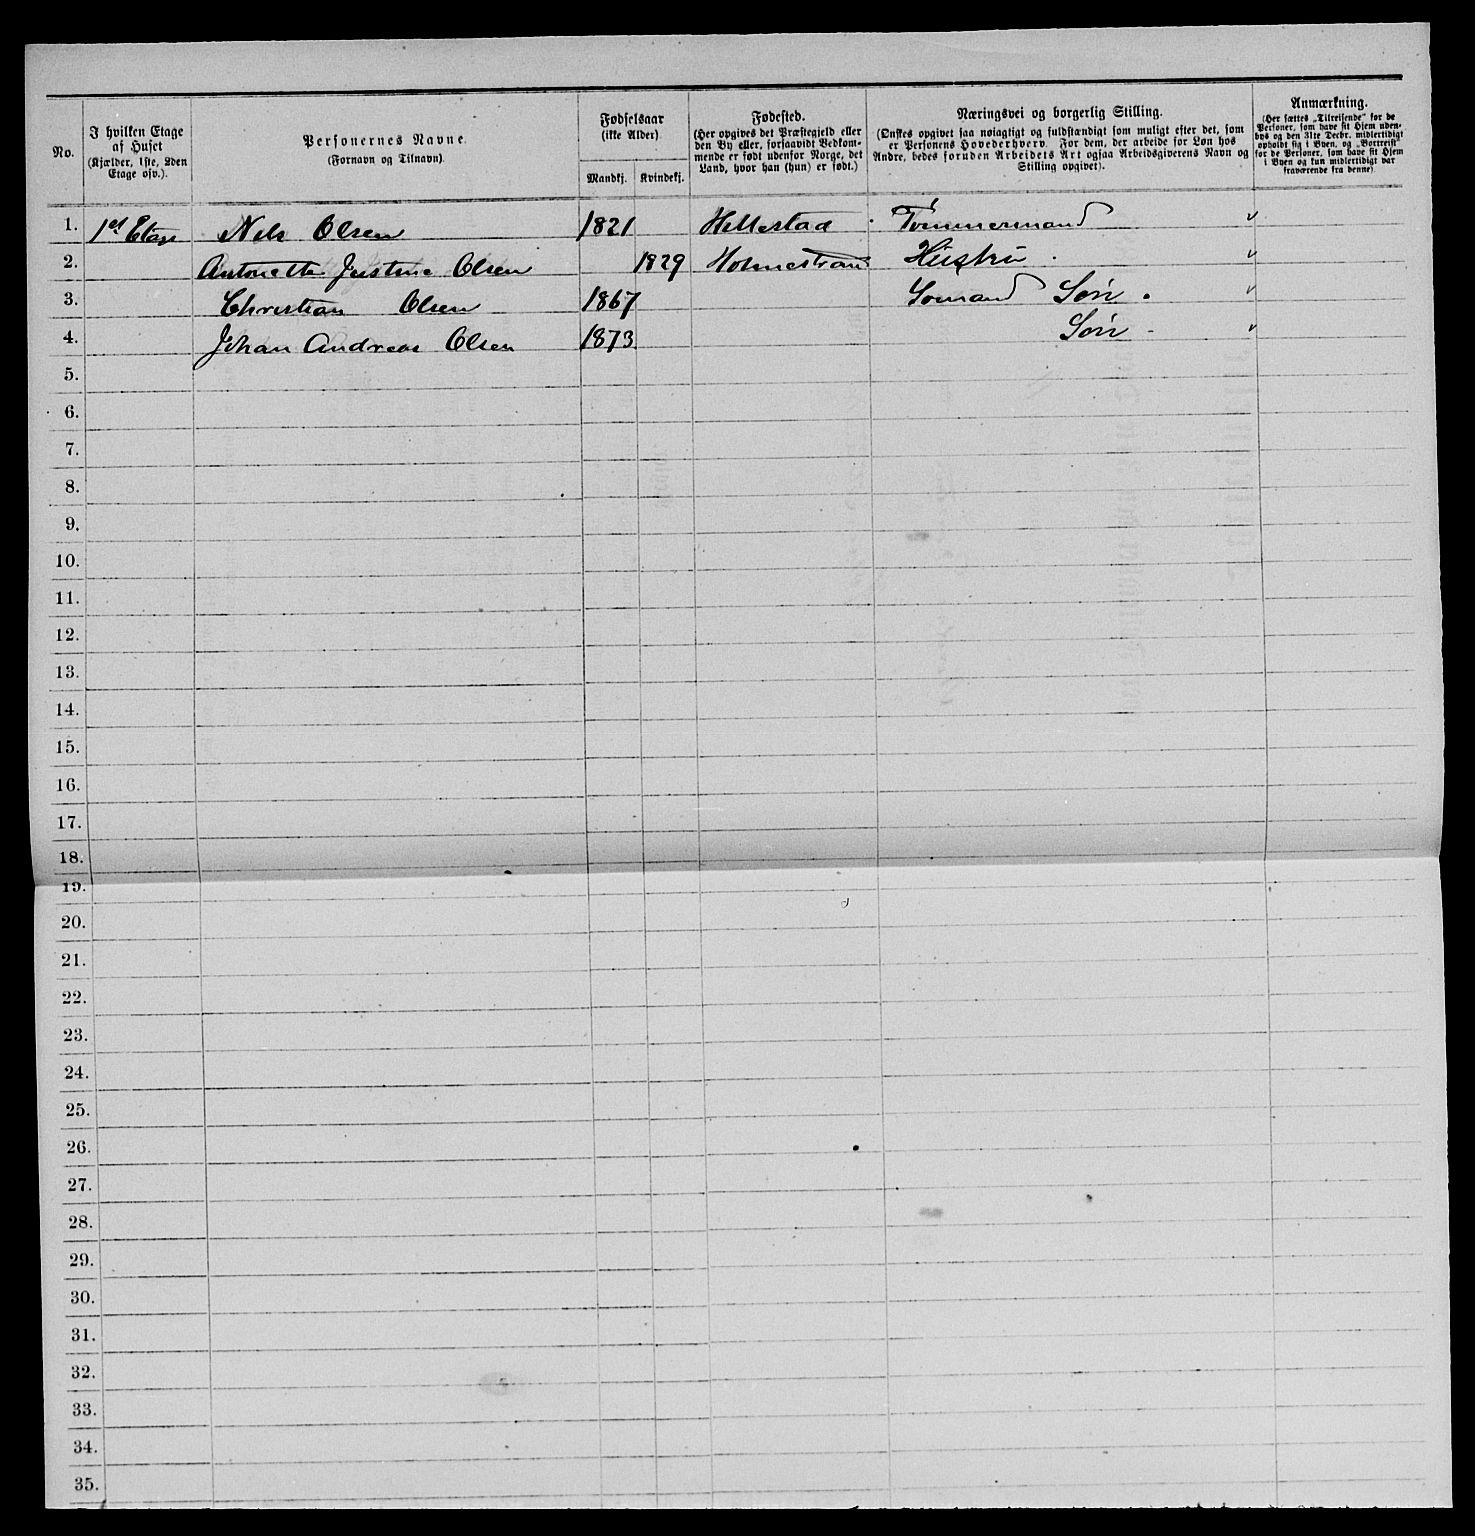 No.
I hvilken Etage
af Huset
(Kjælder, 1ste, 2den
Etage osv.).
Personernes Navne.
(Fornavn og Tilnavn).
Fødselsaar
(ikke Alder).
Mandkj. Kvindekj.
Fødested.
(Her opgives det Præstegjeld eller
den By eller, forsaavidt Vedkom-
mende er født udenfor Norge, det
Land, hvor han (hun) er født.)
Næringsvei og borgerlig Stilling.
(Ønskes opgivet saa nøiagtigt og fuldstændigt som muligt efter det, som
er Personens Hovederhverv. For dem, der arbeide for Løn hos
Andre, bedes foruden Arbeidets Art ogsaa Arbeidsgiverens Navn og
Stilling opgivet).
Anmærkning.
(Her sættes „Tilreisende" for de
Personer, som have sit Hjem uden-
bys og den 31te Decbr. midlertidigt
opholdt sig i Byen, og „Bortreist"
for de Personer, som have sit Hjem
i Byen og kun midlertidigt var
fraværende fra denne)
1. 1st Etage Nils Olsen 1821 Hillestad Tømmermand
2. Antonette Justine Olsen 1829 Holmestrand Hustru
3. Christian Olsen 1867 Sømand Søn
4. Johan Andreas Olsen 1873 Søn
5.
6.
7.
8.
9.
10.
11.
12.
13.
14.
15.
16.
17.
18.
19.
20.
21.
22.
23.
24.
25.
26.
27.
28.
29.
30.
31.
32.
33.
34.
35.